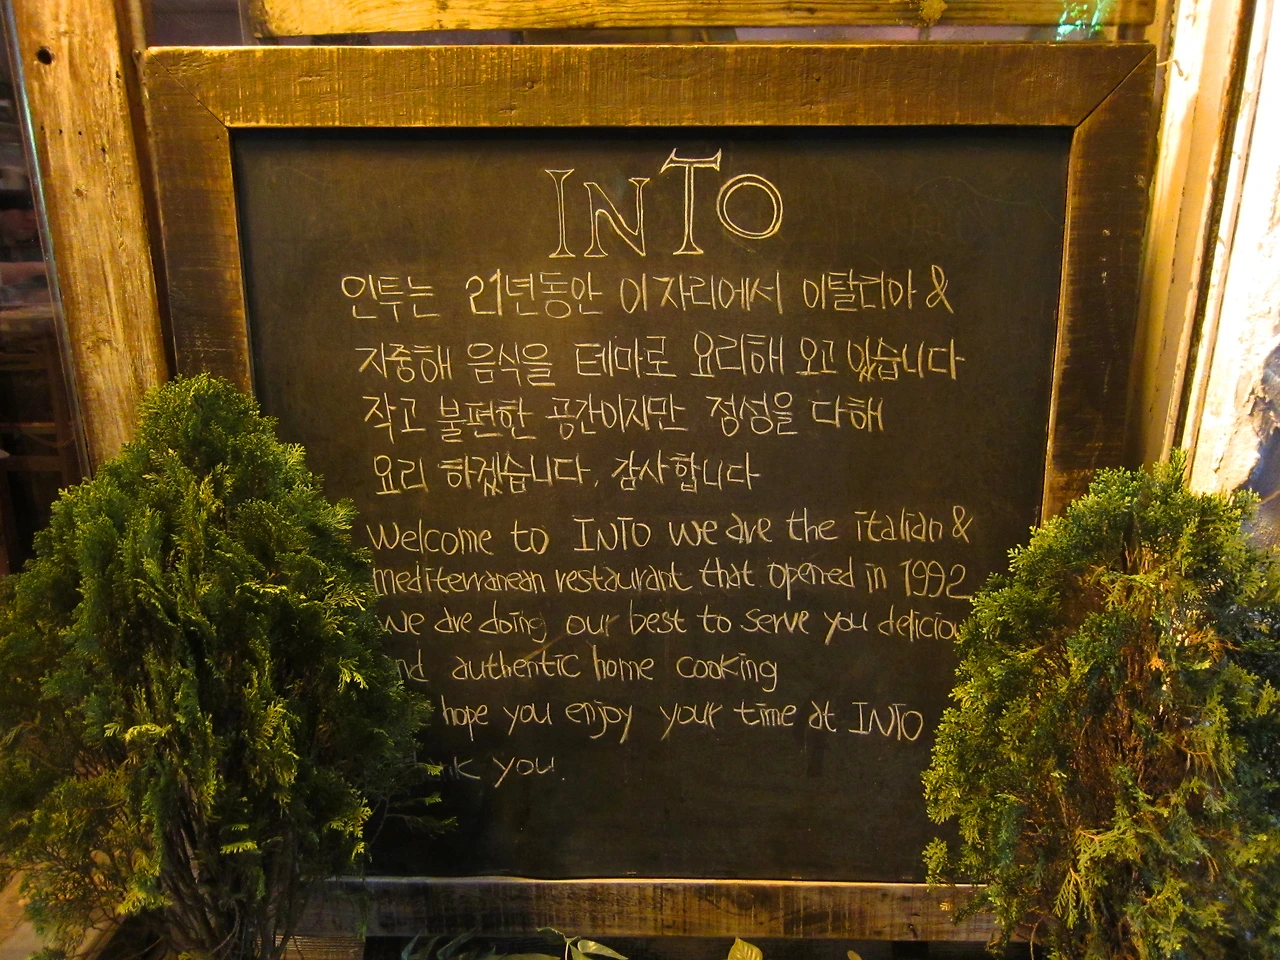 INTO
인투는 21년동안 이 자리에서 이탈리아 &
지중해 음식을 테마로 요리해 오고 있습니다
작고 불편한 공간이지만 정성을 다해
요리 하겠습니다. 감사합니다
Welcome to INTO we are the italian &
mediterranean restaurant that opened in 1992
we are doing our best to serve you
authentic home cooking
hope you enjoy your time at INTO
you.